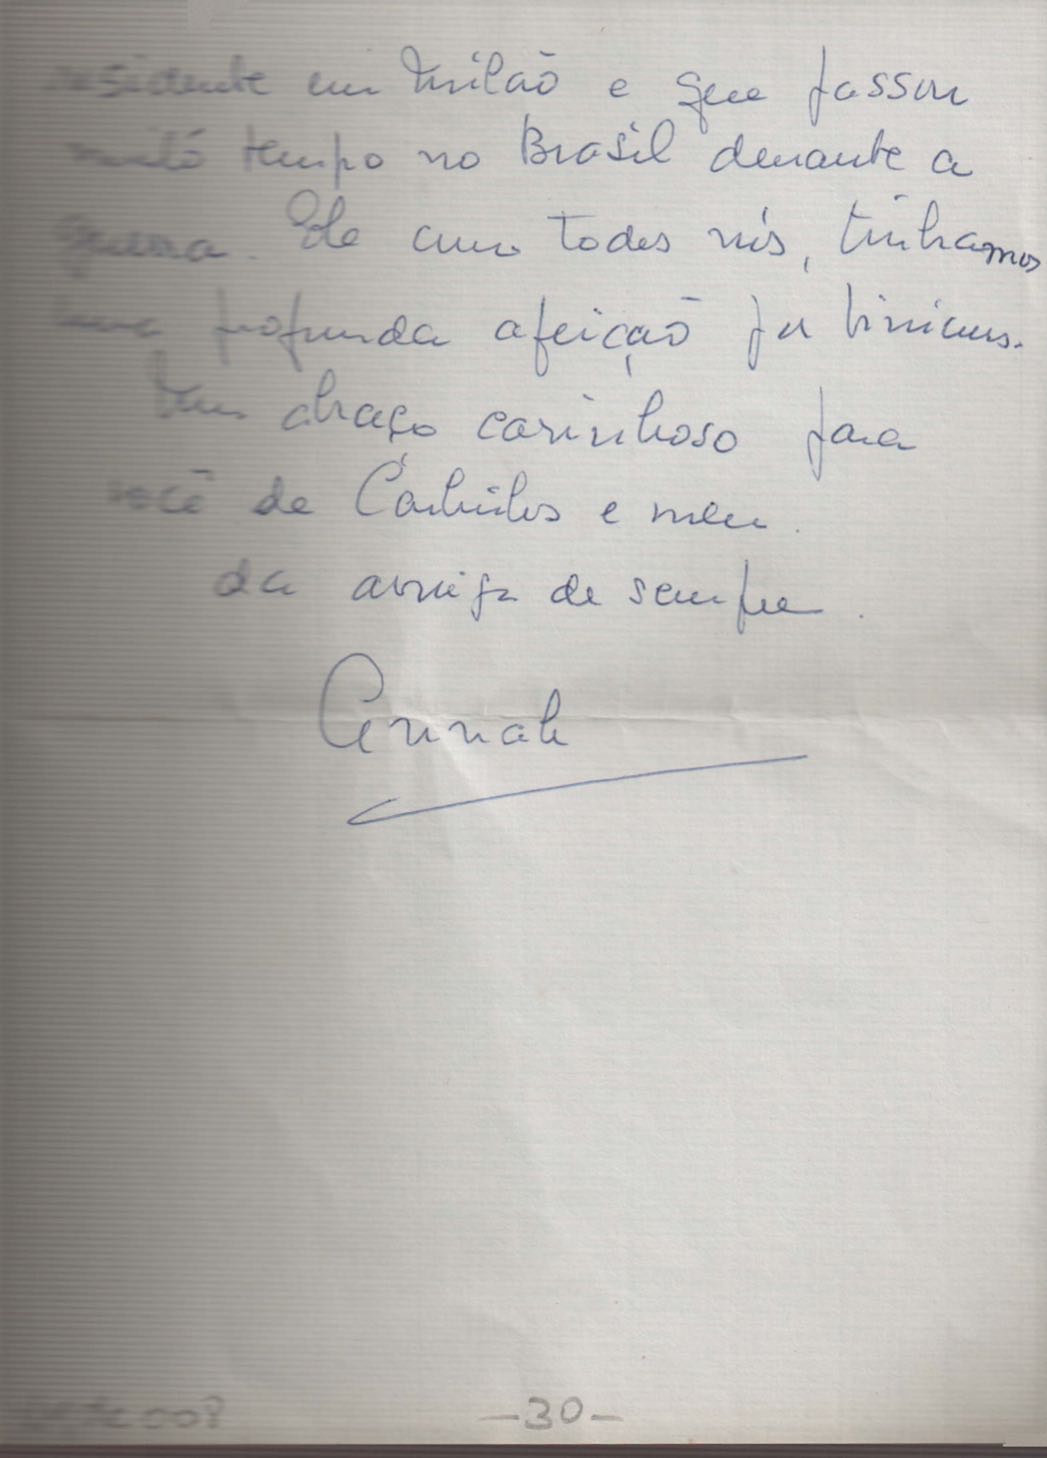 residente em Milão e que passou
muito tempo no Brasil durante a
guerra. Ele como todos nós, tinhamos
uma profunda afeição por Vinicius.
Um abraço carinhoso para
você de Carlinhos e meu.
da amiga de sempre.
Annah
-30-